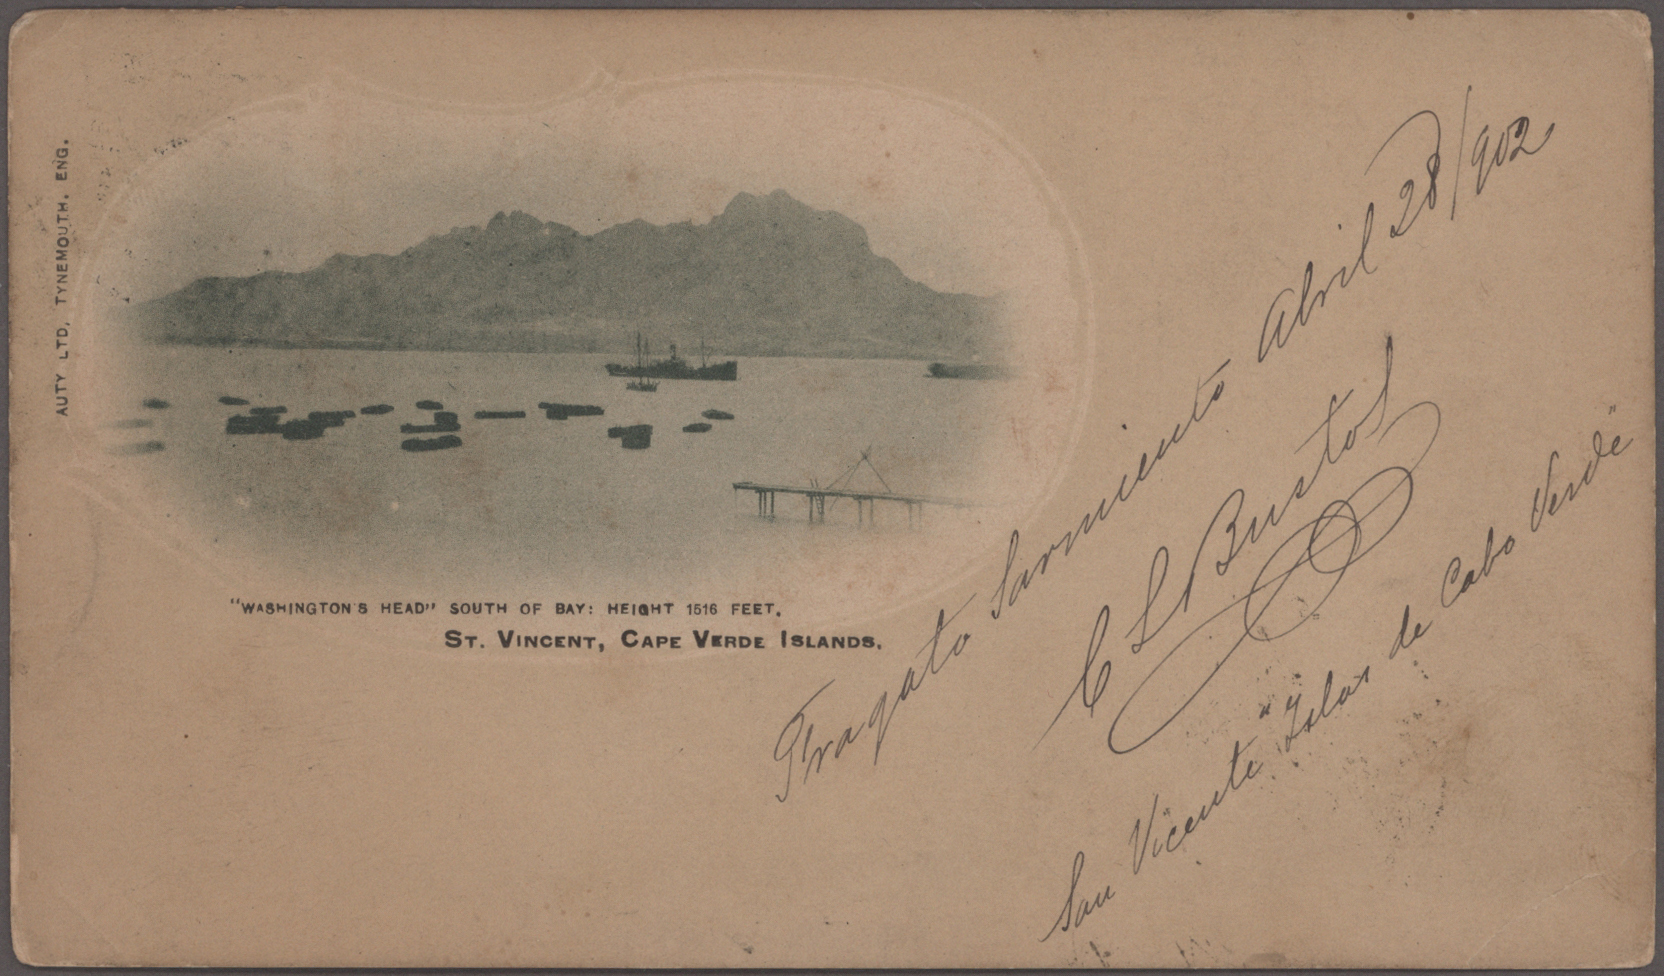 AUTY LTD, TYNEMOUTH. ENG.
"WASHINGTON'S HEAD" SOUTH OF BAY: HEIGHT 1516 FEET.
ST. VINCENT, CAPE VERDE ISLANDS.
Fragata Sarmiento Abril 28/902
C L Bustos
San Vicente "Islas de Cabo Verde"